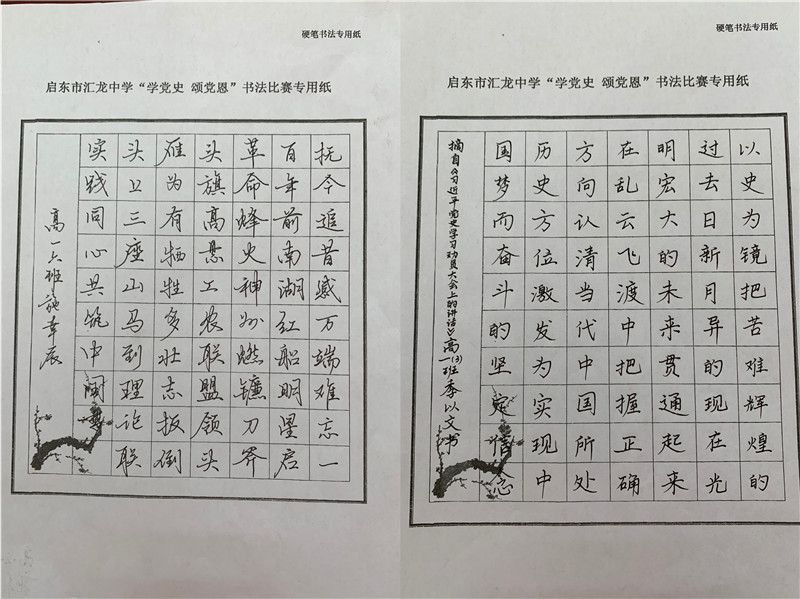 硬笔书法专用纸
启东市汇龙中学“学党史 颂党恩”书法比赛专用纸
抚今追昔感万端难忘一
百年前南湖红船明星启
革命烽火神州燃镰刀斧
头旗高悬工农联盟领头
雁为有牺牲多壮志扳倒
头上三座山马到理论联
实践同心共筑中国梦
高一六班施辰
硬笔书法专用纸
启东市汇龙中学“学党史 颂党恩”书法比赛专用纸
以史为镜把苦难辉煌的
过去日新月异的现在光
明宏大的未来贯通起来
在乱云飞渡中把握正确
方向认清当代中国所处
历史方位激发为实现中
国梦而奋斗的坚定信念
摘自《习近平党史学习动员大会上的讲话》高一(3)班季以文书